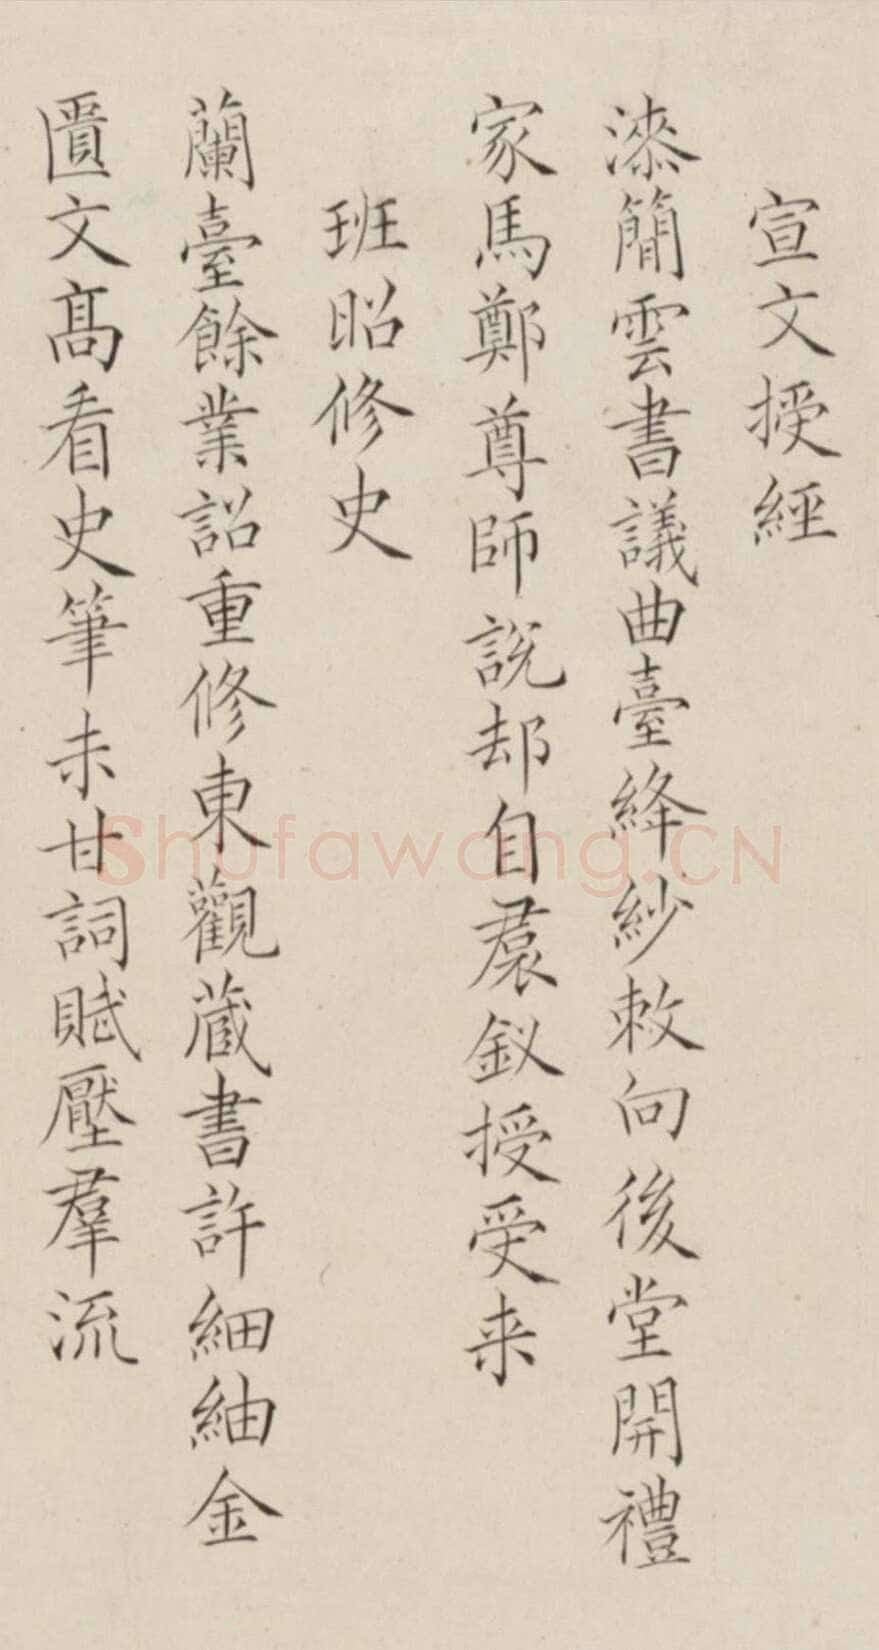 宣文授經
漆簡雲書議曲臺絳紗敕向後堂開禮
家馬鄭尊師說却自裠釵授受来
班昭修史
蘭臺餘業詔重修東觀蔵書許細紬金
匱文髙看史筆未甘詞賦壓羣流
Shufawang.CN